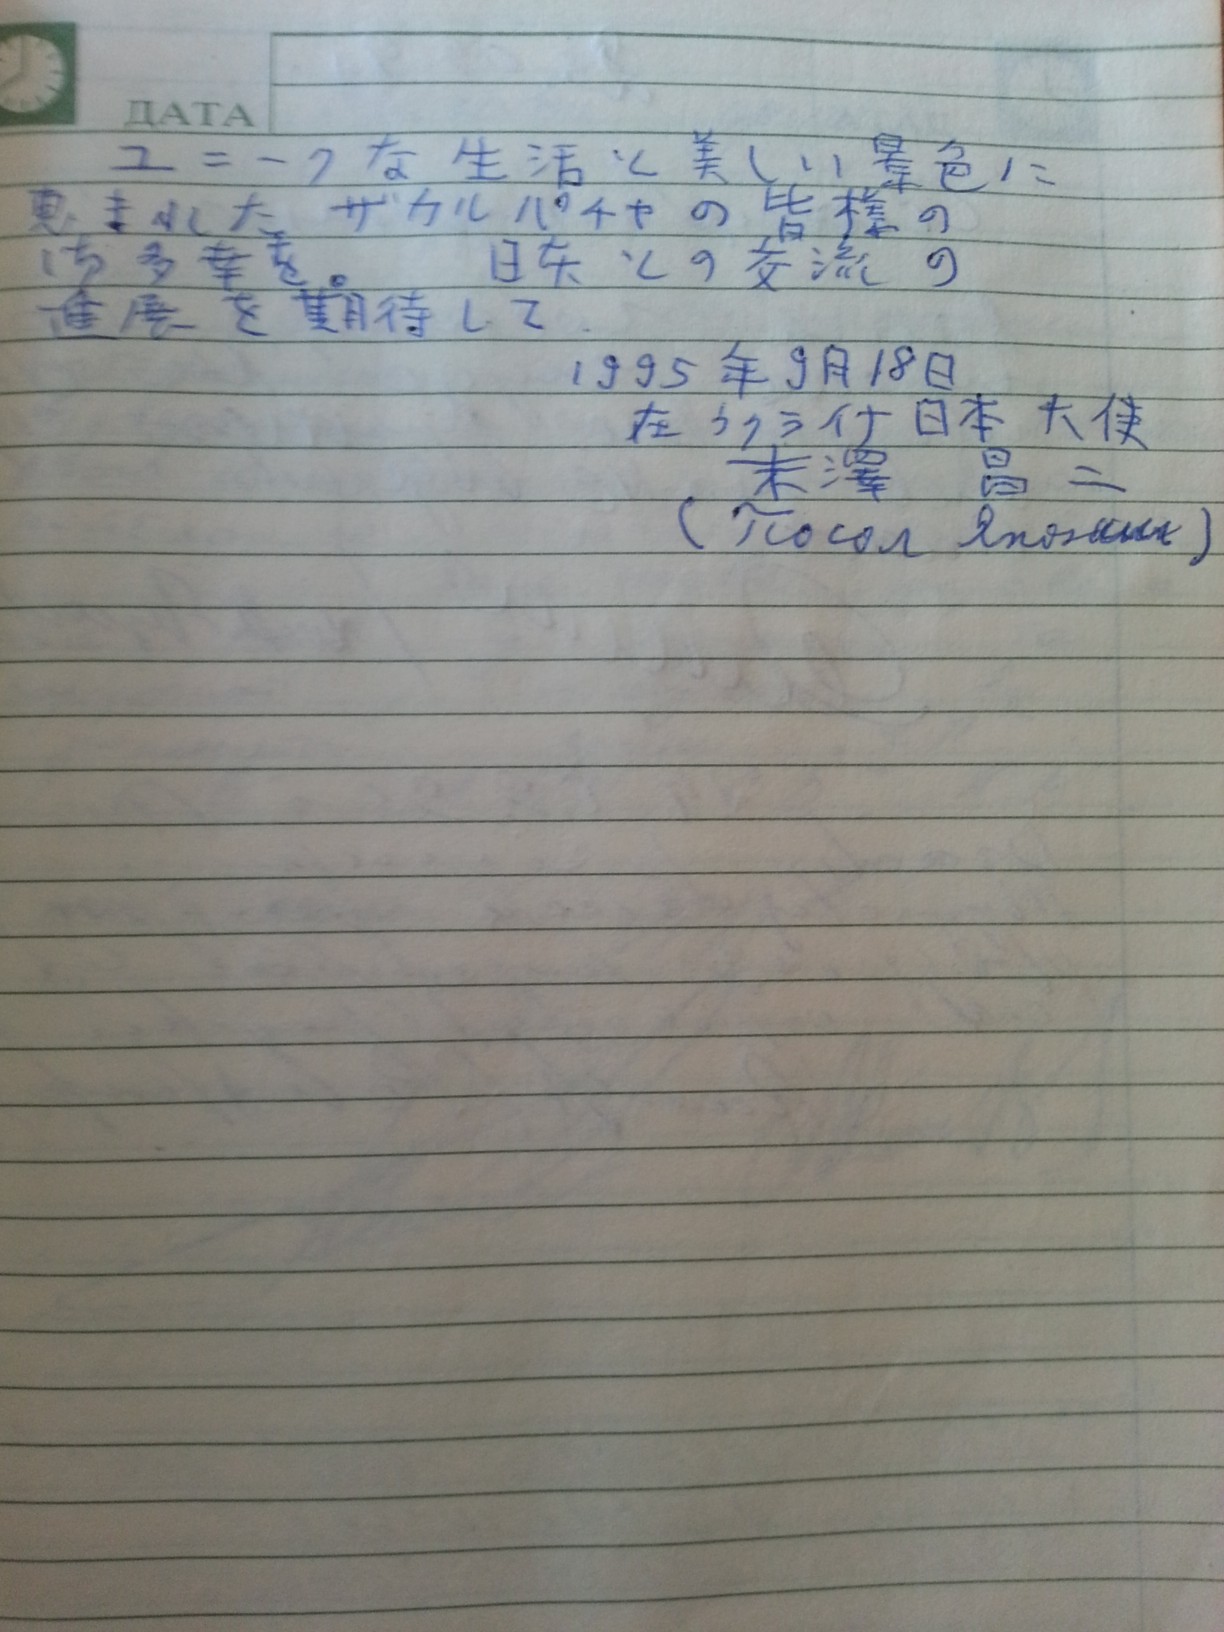 ДАТА
ユニークな生活と美しい景色に
恵まれたザカルパチヤの皆様の
御多幸を。 日本との交流の
進展を期待して.
1995年9月18日
在ウクライナ日本大使
末澤 昌二
(Посол Японии)